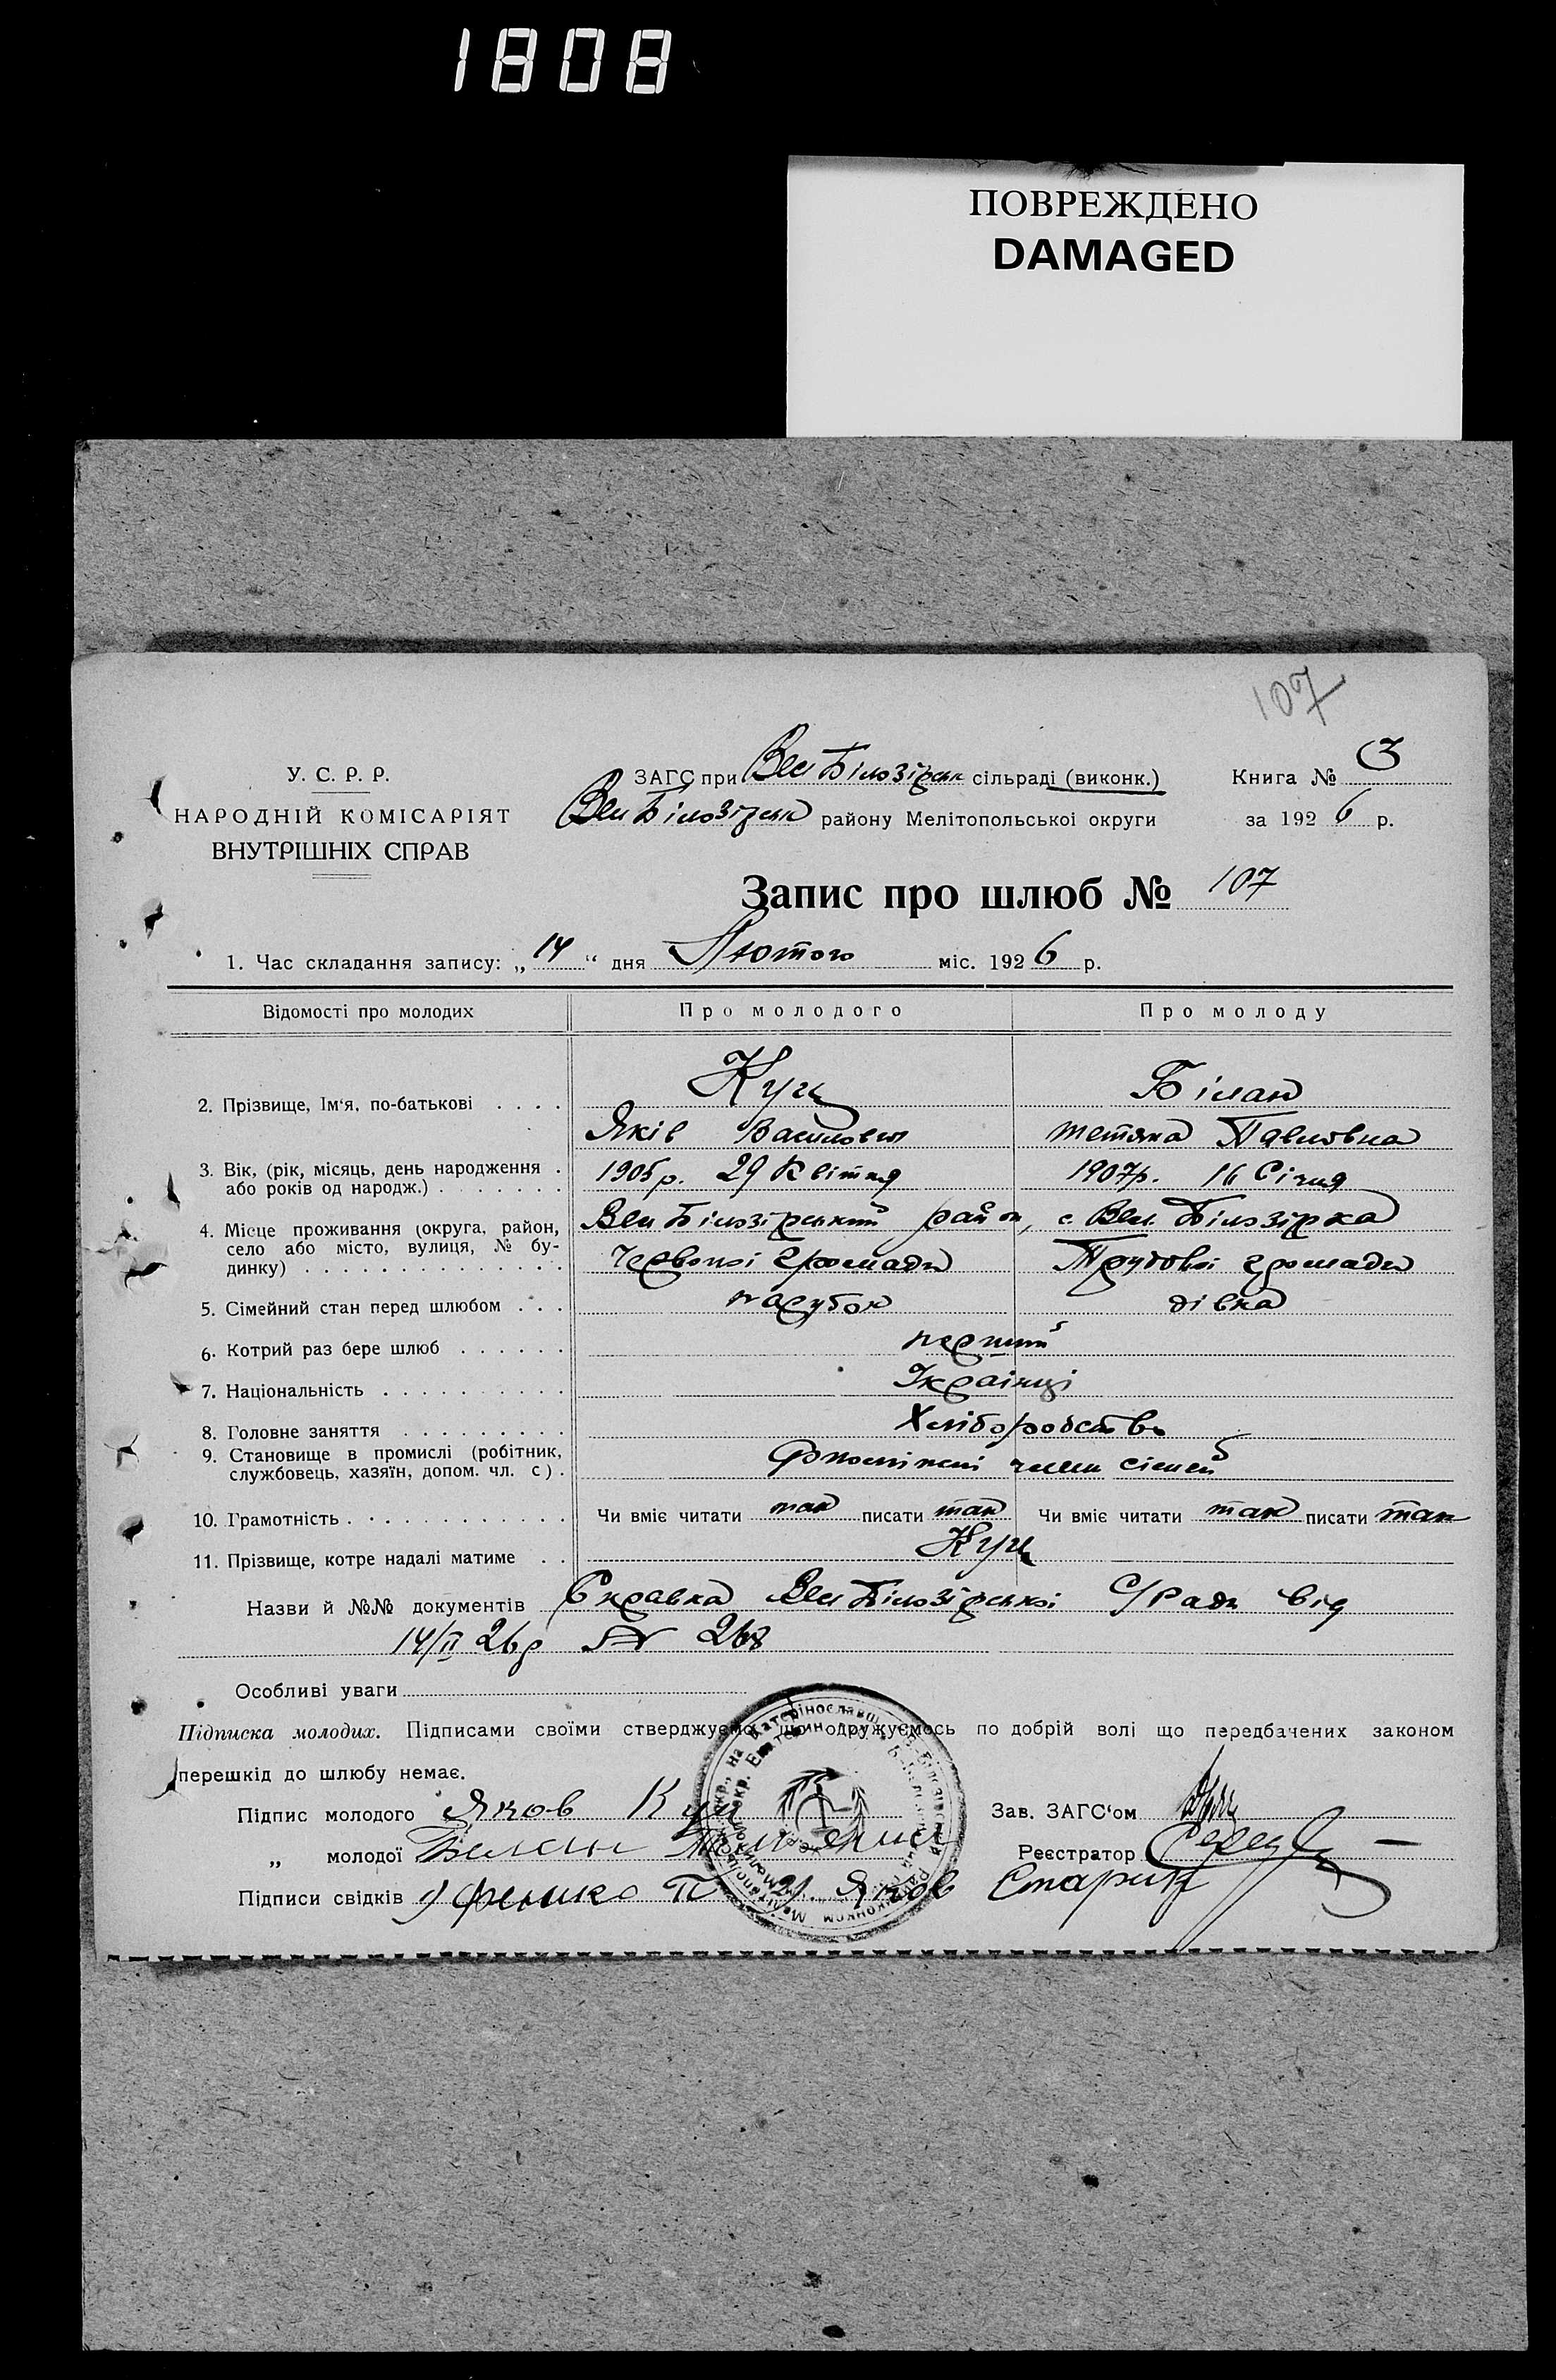 1808
ПОВРЕЖДЕНО
DAMAGED
107
У. С. Р. Р.
НАРОДНІЙ КОМІСАРІЯТ
ВНУТРІШНІХ СПРАВ
ЗАГС при Вел Білозірськ сільраді (виконк.)
Вел Білозірськ району Мелітопольськоі округи
Книга № 3
за 1926 р.
Запис про шлюб № 107
1. Час складання запису: „14“ дня Лютого міс. 1926 р.
Відомості про молодих Про молодого Про молоду
2. Прізвище, Ім'я, по-батькові . . . . Куц Білан
Яків Васильович Тетяна Павловна
3. Вік, (рік, місяць, день народження . або років од народж.) . . . . . . . 1905 р. 29 Квітня 1907 р. 16 Січня
4. Місце проживання (округа, район, село або місто, вулиця, № будинку) . . . . . . . . . . . . . . Вел Білозірський район, с. Вел. Білозірка
Червоноі громади Трудовоі громади
5. Сімейний стан перед шлюбом . . . парубок дівка
6. Котрий раз бере шлюб . . . . . . перший
7. Національність . . . . . . . . . . Українці
8. Головне заняття . . . . . . . . . Хліборобство
9. Становище в промислі (робітник, службовець, хазяїн, допом. чл. с) . Допоміжні члени сімей
10. Грамотність . . . . . . . . . . . . Чи вміє читати так писати так Чи вміє читати так писати так
11. Прізвище, котре надалі матиме . . Куц
Назви й №№ документів Справка Вел Білозірськоі С/Ради від
14/II 26 р № 268
Особливі уваги
Підписка молодих. Підписами своїми стверджуємо, що одружуємось по добрій волі що передбачених законом
перешкід до шлюбу немає.
Підпис молодого Яков Куц
Зав. ЗАГС'ом
„ молодої Белан Татяна
Реєстратор
Підписи свідків 1) П 2) Яков Стариц